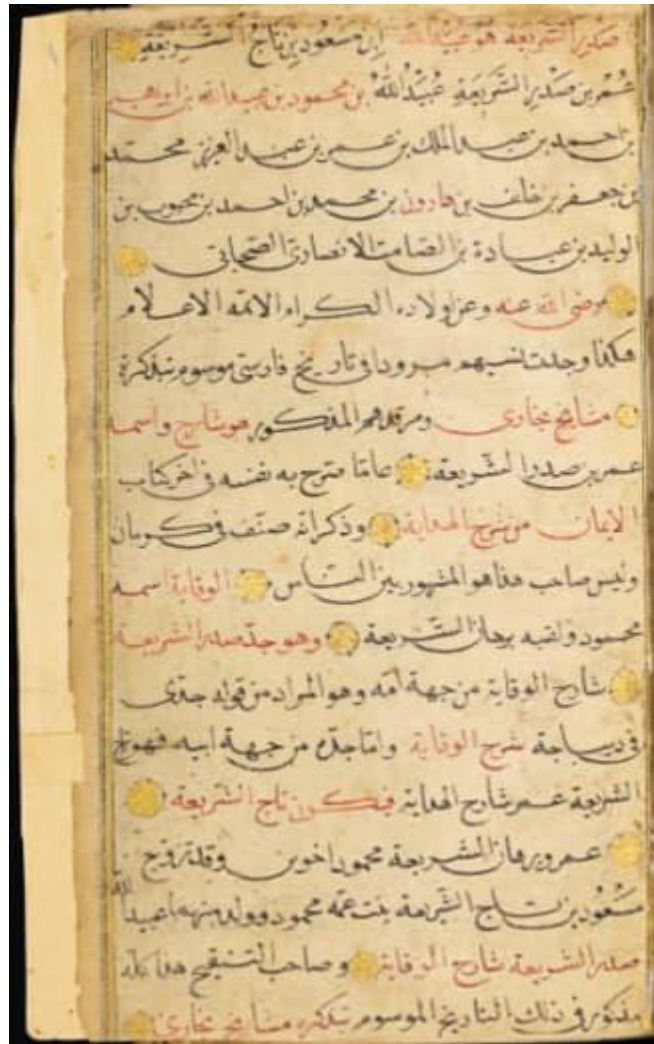 صدر الشريعة هو عبيد الله ابن مسعود بن تاج الشريعة
عمر بن صدر الشريعة عبيد الله بن محمود بن عبد الله بن ابراهيم
بن احمد بن عبد الملك بن عمر بن عبد العزيز محمد
بن جعفر بن خلف بن هارون بن محمد بن احمد بن محبوب بن
الوليد بن عبادة بن الصامت الانصارى الصحابى
رضى الله عنه وعن اولاده الكرام الائمه الاعلام
هكذا وجدت نسبهم فى تاريخ فارسى موسوم بتذكرة
مشايخ بخارى المذكور هو شارح واسمه
عمر بن صدر الشريعة صرح به نفسه فى اخر كتاب
الايمان من شرح الهداية وذكر انه صنف فى كرمان
وليس صاحب هو المشهور بين الناس الوقاية اسمه
محمود ولقبه برهان الشريعة وهو جد صدر الشريعة
شارح الوقاية من جهة امه وهو المراد من قوله جدى
فى ديباجة شرح الوقاية واما جده من جهة ابيه فهو تاج
الشريعة عمر شارح الهداية فيكون تاج الشريعة
عمر وبرهان الشريعة محمود اخوين وقد تزوج
مسعود بن تاج الشريعة بنت عمه محمود وولد منهما عبيد الله
صدر الشريعة شارح الوقاية وصاحب التنقيح هذا كله
مذكور فى ذلك التاريخ الموسوم بتذكره مشايخ بخارى